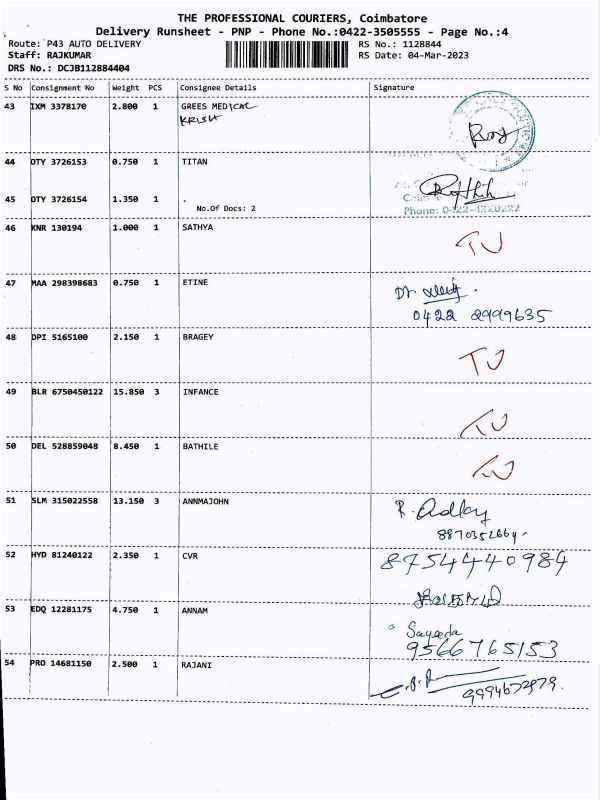 THE PROFESSIONAL COURIERS, Coimbatore
Delivery Runsheet - PNP - Phone No.:0422-3505555 - Page No.:4
Route: P43 AUTO DELIVERY RS No.: 1128844
Staff: RAJKUMAR RS Date: 04-Mar-2023
DRS No.: DCJB112884404
S No Consignment No Weight PCS Consignee Details Signature
43 IXM 3378170 2.800 1 GREES MEDICAL
KRISH
Roy
44 OTY 3726153 0.750 1 TITAN
45 OTY 3726154 1.350 1 .
No.Of Docs: 2
Phone: 0422-4220222
46 KNR 130194 1.000 1 SATHYA TJ
47 MAA 298398683 0.750 1 ETINE
Dr
0422 2999635
48 DPI 5165100 2.150 1 BRAGEY TJ
49 BLR 6750450122 15.850 3 INFANCE TJ
50 DEL 528859048 8.450 1 BATHILE TJ
51 SLM 315022558 13.150 3 ANNMAJOHN
R.
8870352664
52 HYD 81240122 2.350 1 CVR 8754440984
53 EDQ 12281175 4.750 1 ANNAM
Sayeeda
9566765153
54 PRO 14681150 2.500 1 RAJANI
9994672979.